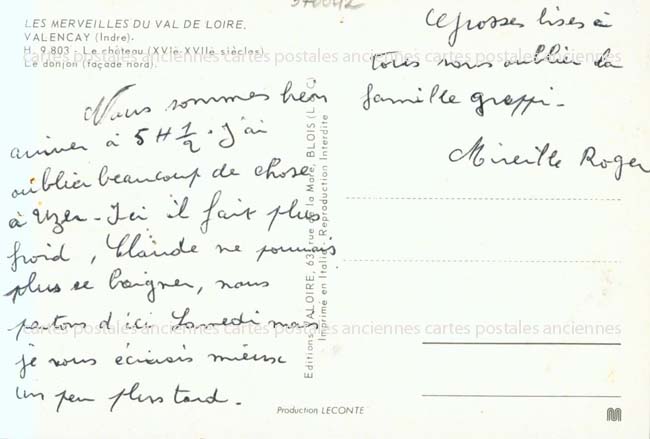 370042
LES MERVEILLES DU VAL DE LOIRE.
VALENCAY (Indre).
H. 9.803 - Le château (XVIè-XVIIè siècles)
Le donjon (façade nord).
cartes postales anciennes cartes postales anciennes cartes postales anciennes
Nous sommes bien
arriver à 5 H 1/2. J'ai
oublier beaucoup de chose
à Uzer - Ici il fait plus
froid, Claude ne pouvais
plus se baigner, nous
partons d'ici Samedi mais
je vous écrirais mieux
un peu plus tard.
Grosses bises à
tous sans oublier la
famille greppi -
Mireille Roger
Editions VALOIRE, 63, rue de la Mare, BLOIS (L.-&-C.)
Imprimé en Italie - Reproduction Interdite
cartes postales anciennes cartes postales anciennes cartes postales anciennes
Production LECONTE